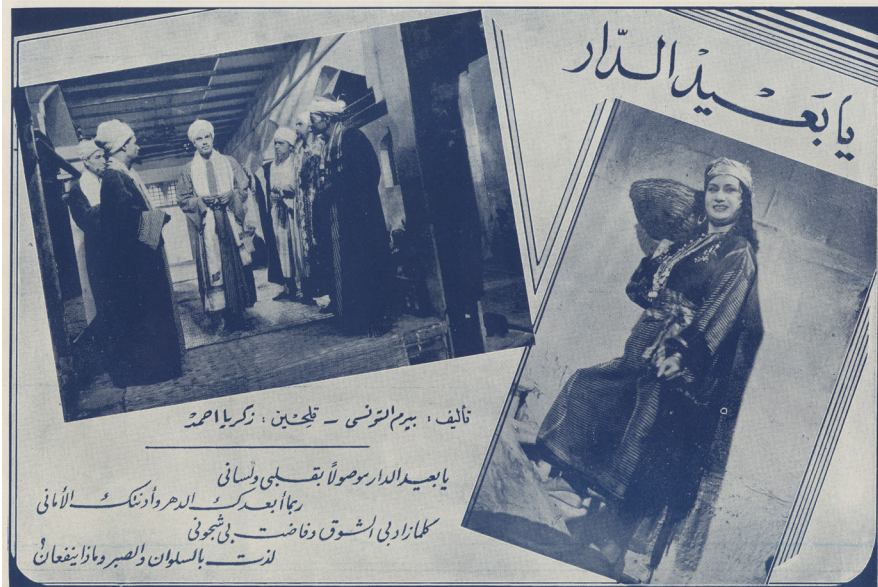 يا بَعيْد الدّار
تأليف : بيرم التونسى – تلحين : زكريا احمد
يا بعيد الدار موصولاً بقلبى ولسانى
ربما أبعدك الدهر وأدنتك الأمانى
كلما زاد بى الشوق وفاضت بى شجونى
لذت بالسلوان والصبر وماذا ينفعان ؟